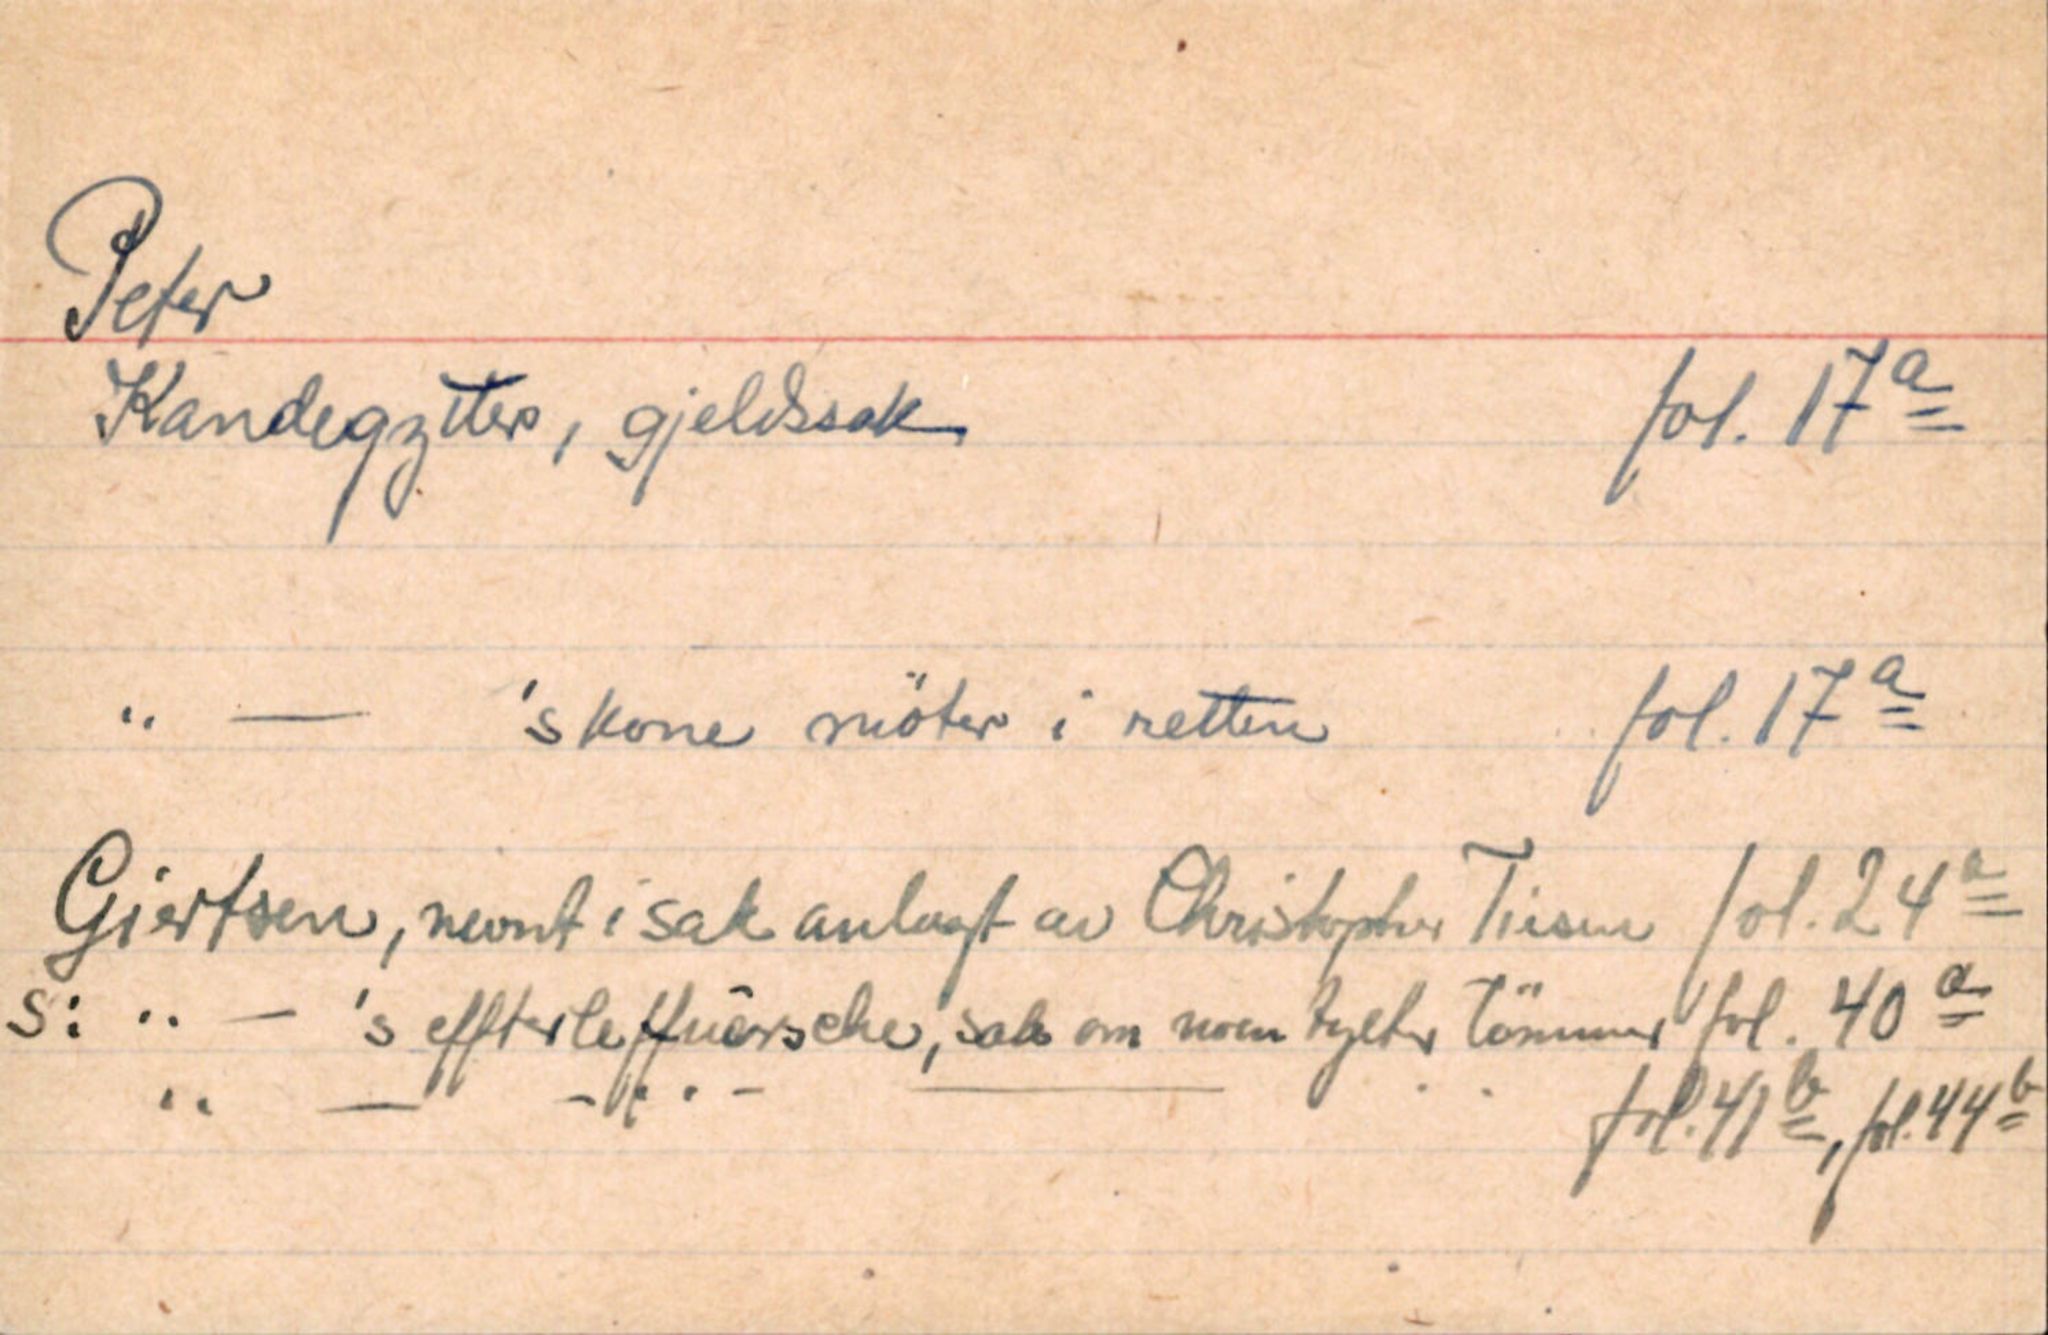 Peter
Kandegzter, gjeldssak fol. 17a
" — 's kone möter i retten fol. 17a
Giertsen, nevnt i sak anlagt av Christopher Tiisen fol. 24a
S: " — 's effterleffuersche, sak om noen tylter Tömmer fol. 40a
" — - " - — " fol. 41b, fol. 44b